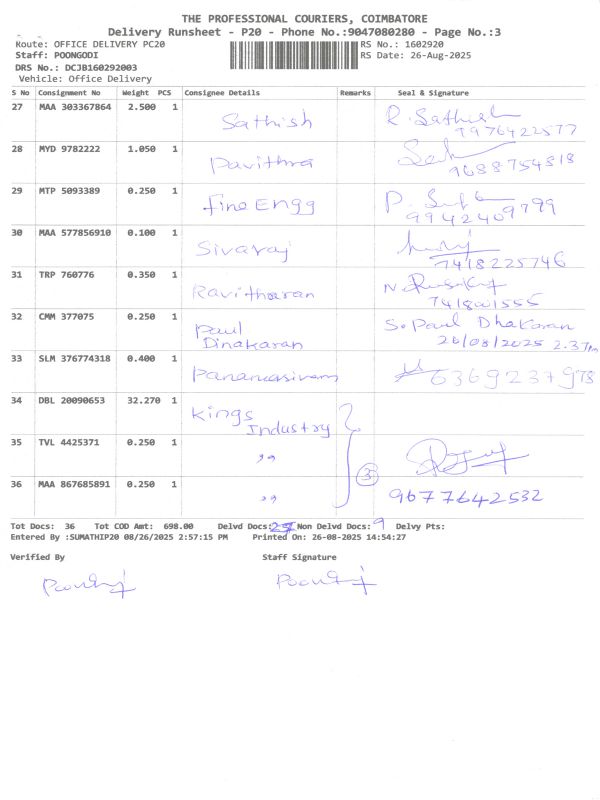 THE PROFESSIONAL COURIERS, COIMBATORE
Delivery Runsheet - P20 - Phone No.:9047080280 - Page No.:3
Route: OFFICE DELIVERY PC20 RS No.: 1602920
Staff: POONGODI RS Date: 26-Aug-2025
DRS No.: DCJB160292003
Vehicle: Office Delivery
S No Consignment No Weight PCS Consignee Details Remarks Seal & Signature
27 MAA 303367864 2.500 1 Sathish R. Sathish
9976422577
28 MYD 9782222 1.050 1 Pavithra
9688754818
29 MTP 5093389 0.250 1 fine Engg
9942409799
30 MAA 577856910 0.100 1 Sivaraj
7418225746
31 TRP 760776 0.350 1 Ravitharan
32 CMM 377075 0.250 1 Paul Dinakaran S. Paul Dhakaran
26/08/2025 2.37pm
33 SLM 376774318 0.400 1 Paramasivam 6369237978
34 DBL 20090653 32.270 1 Kings Industry
35 TVL 4425371 0.250 1 ,,
3
36 MAA 867685891 0.250 1 ,, 9677642532
Tot Docs: 36 Tot COD Amt: 698.00 Delvd Docs: 27 Non Delvd Docs: 9 Delvy Pts:
Entered By :SUMATHIP20 08/26/2025 2:57:15 PM Printed On: 26-08-2025 14:54:27
Verified By Staff Signature